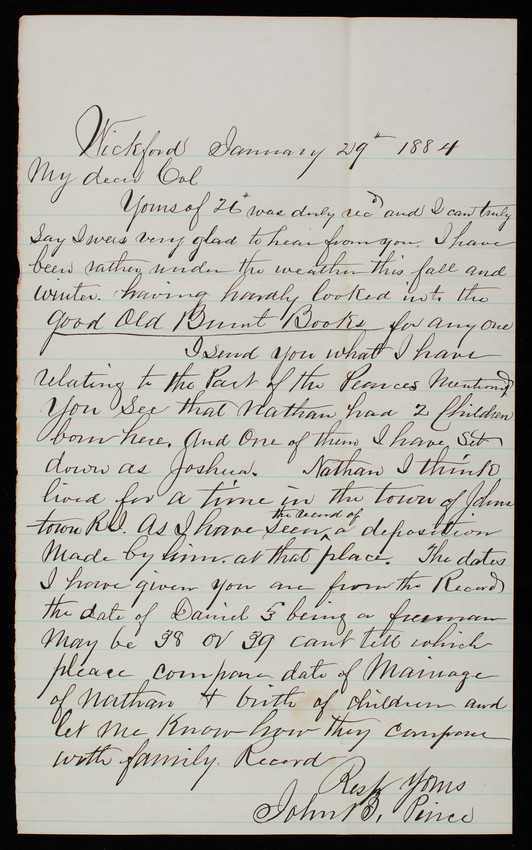 Wickford January 29th 1884
My dear Col
Yours of 26th was duly recd and I can truly
say I was very glad to hear from you. I have
been rather under the weather this fall and
winter. having hardly looked into the
good Old Burnt Books for any one
I send you what I have
relating to the Part of the Pearces Mentioned,
You See that Nathan had 2 Children
born here. And One of them I have Set
down as Joshua. Nathan I think
lived for a time in the town of Johns
town R.I. As I have seen the record of a deposition
Made by him. at that place. The dates
I have given you are from the Records
the date of Daniel 5 being a freeman
May be 38 or 39 cant tell which
please compare date of Marriage
of Nathan & birth of children and
let me Know how they compare
with family Record
Resp Yours
John B. Pierce